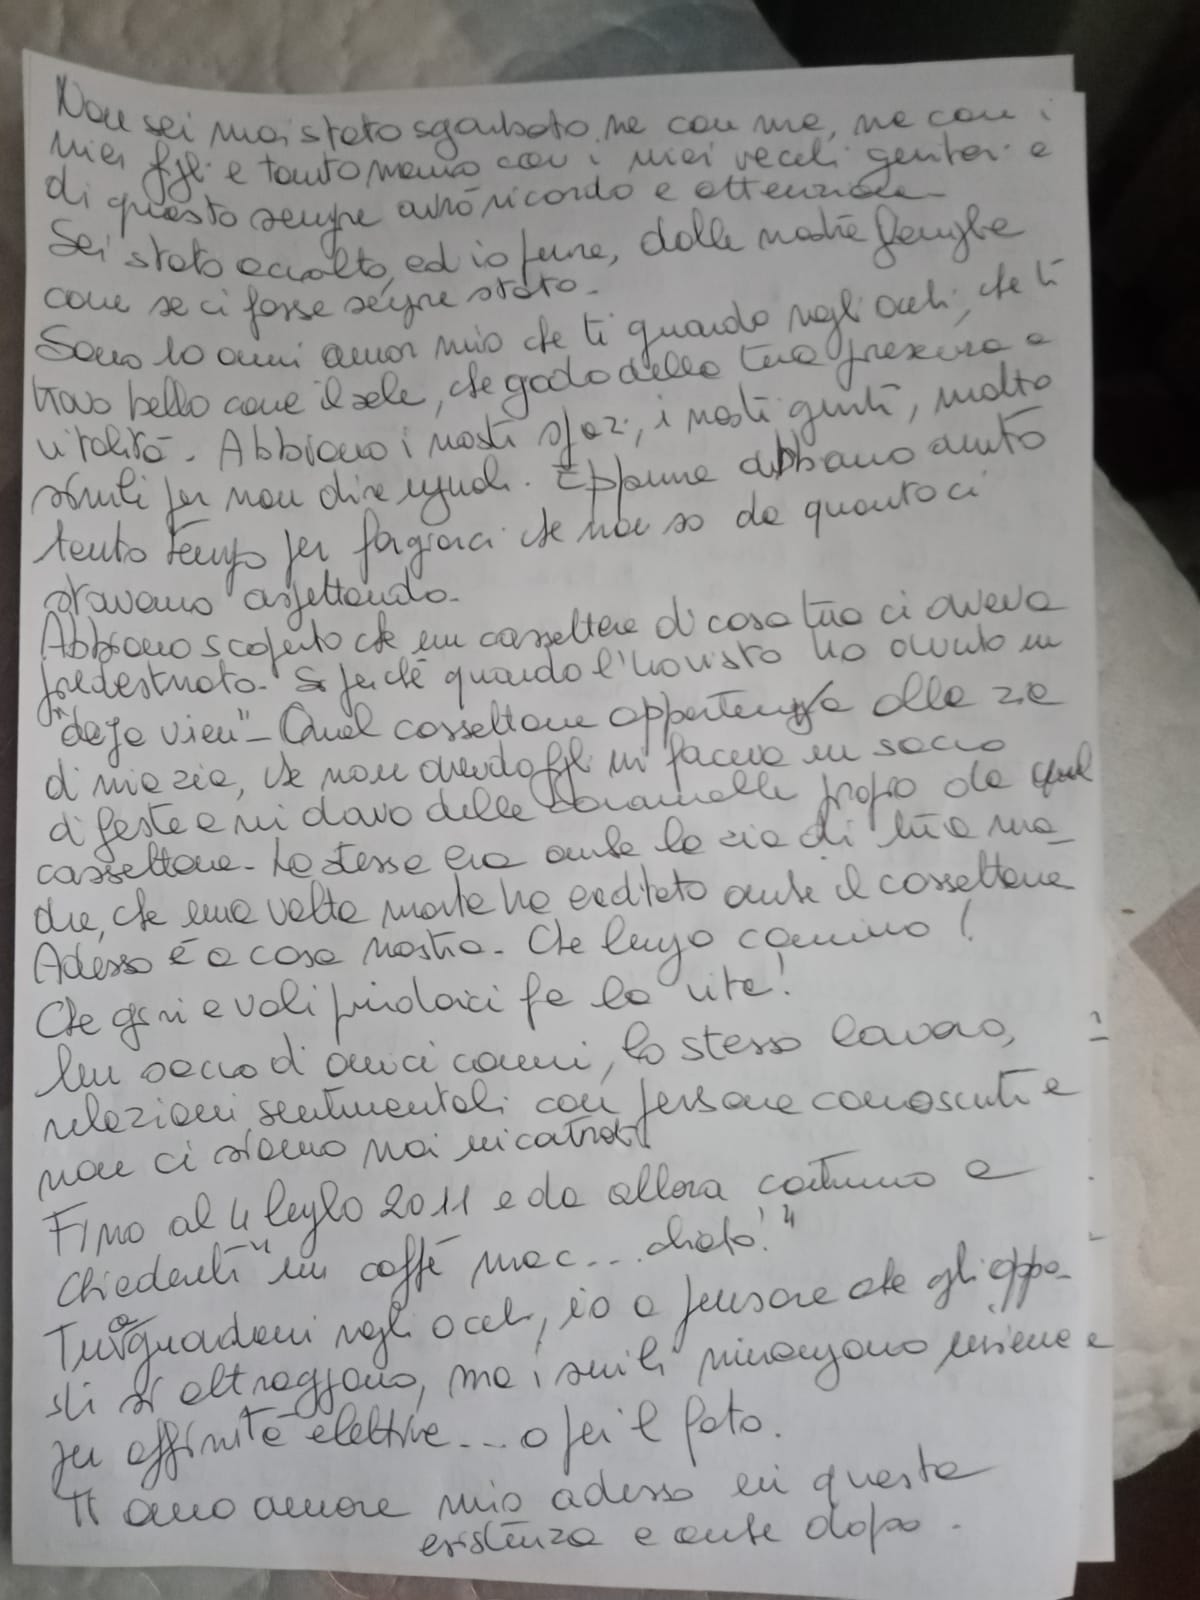 Non sei mai stato sgarbato ne con me, ne con i
miei figli e tanto meno con i miei vecchi genitori e
di questo sempre avrò ricordo e attenzione -
Sei stato accolto, ed io pure, dalle nostre famiglie
come se ci fosse sempre stato -
Sono 10 anni amor mio che ti guardo negli occhi, che ti
trovo bello come il sole, che godo della tua presenza e
vitalità. Abbiamo i nostri spazi, i nostri gusti, molto
simili per non dire uguali. Eppure abbiamo avuto
tanto tempo per forgiarci che non so da quanto ci
stavamo aspettando -
Abbiamo scoperto che un cassettone di casa tua ci aveva
predestinato - Si perchè quando l'ho visto ho avuto un
"deja vieu" - Quel cassettone apparteneva alla zia
di mia zia, che non avendo figli mi faceva un sacco
di feste e mi dava delle caramelle proprio da quel
cassettone - La stessa era anche la zia di tua ma-
dre, che una volta morta ha ereditato anche il cassettone
Adesso è a casa nostra - Che lungo cammino!
Che giri e voli pindarici fa la vita!
Un sacco di amici comuni, lo stesso lavoro,
relazioni sentimentali con persone conosciute e
non ci siamo mai incontrati
Fino al 4 luglio 2011 e da allora continuo a
chiederti "un caffè mac... chiato!"
Tu a guardarmi negli occhi, io a pensare che gli oppo-
sti si attraggono, ma i simili rimangono insieme e
per affinità elettive... o per il fato.
Ti amo amore mio adesso in questa
esistenza e anche dopo -